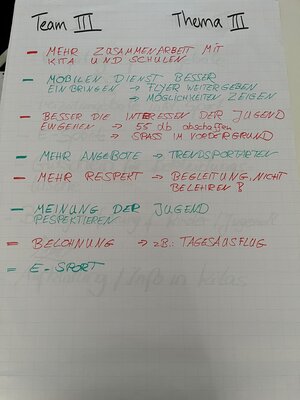 Team III Thema III
- MEHR ZUSAMMENARBEIT MIT
KITA UND SCHULEN
- MOBILEN DIENST BESSER
EINBRINGEN → FLYER WEITERGEBEN
→ MÖGLICHKEITEN ZEIGEN
- BESSER DIE INTERESSEN DER JUGEND
EINGEHEN → 55 db abschaffen
→ SPASS IM VORDERGRUND
- MEHR ANGEBOTE → TRENDSPORTARTEN
- MEHR RESPEKT → BEGLEITUNG, NICHT
BELEHREN!
- MEINUNG DER JUGEND
RESPEKTIEREN
- BELOHNUNG → zB.: TAGESAUSFLUG
- E-SPORT